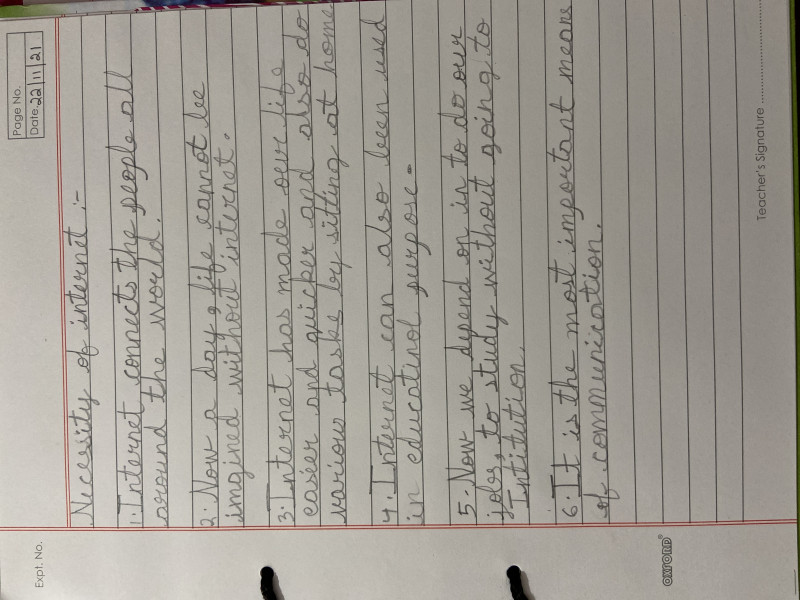 Page No.
Date 22/11/21
Expt. No.
Necessity of internet :-
1. Internet connects the people all
around the world.
2. Now a day, life cannot be
imgined without internet.
3. Internet has made our life
easier and quicker and also do
various tasks by sitting at home
4. Internet can also been used
in educatinol purpose.
5. Now we depend on in to do our
jobs, to study without going to
Intitution.
6. It is the most important means
of communication.
OXFORD®
Teacher's Signature